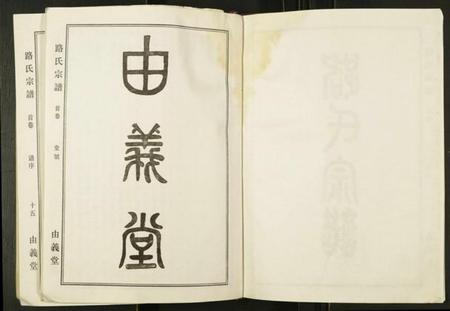 由義堂
路氏宗譜 首卷 堂號 由義堂
路氏宗譜 首卷 譜序 十五 由義堂